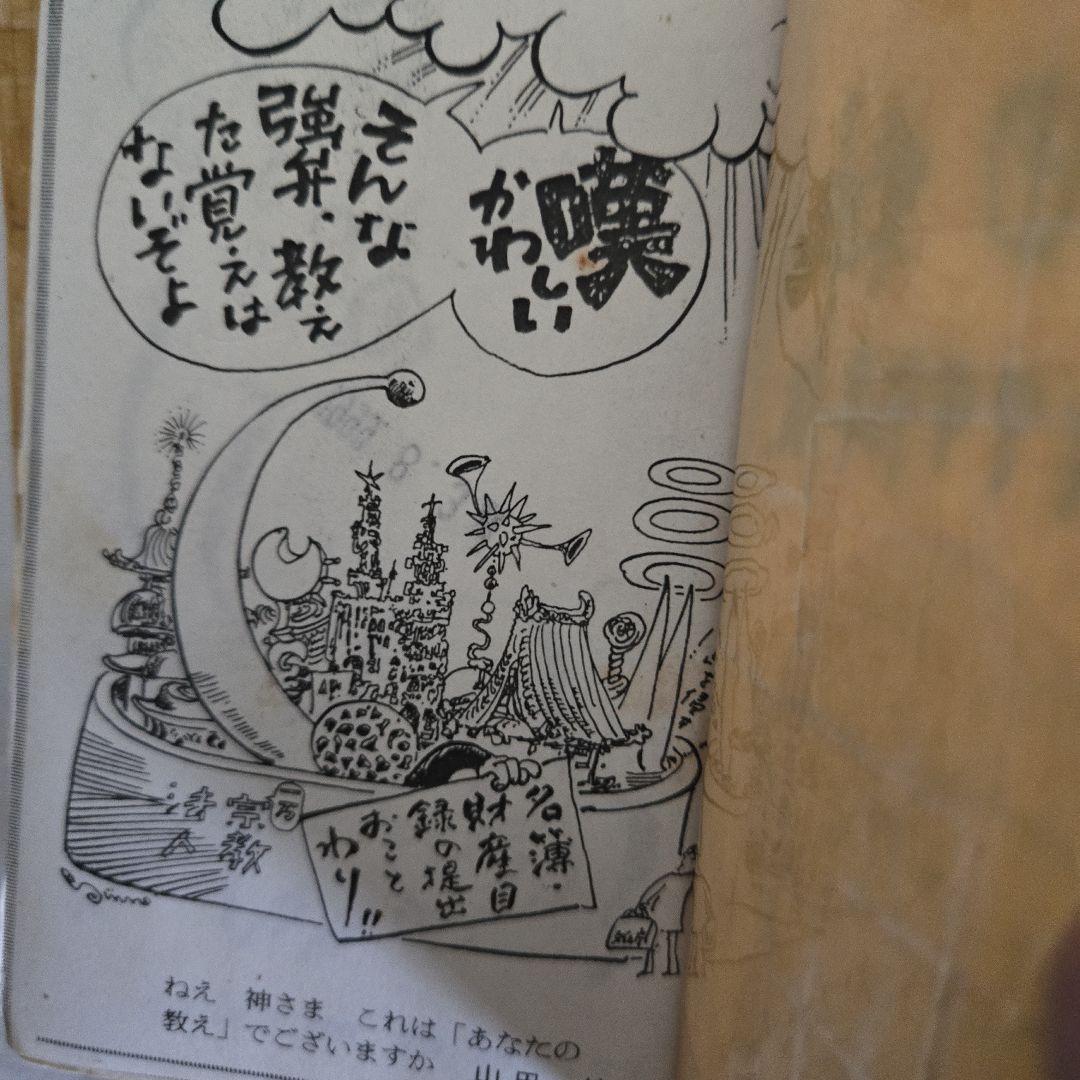 嘆
かわしい
そんな
強弁、教え
た覚えは
ないぞよ
名簿・
財産目
録の提出
おこと
わり!!
一万
宗教
法人
ねえ 神さま これは「あなたの
教え」でございますか
山田